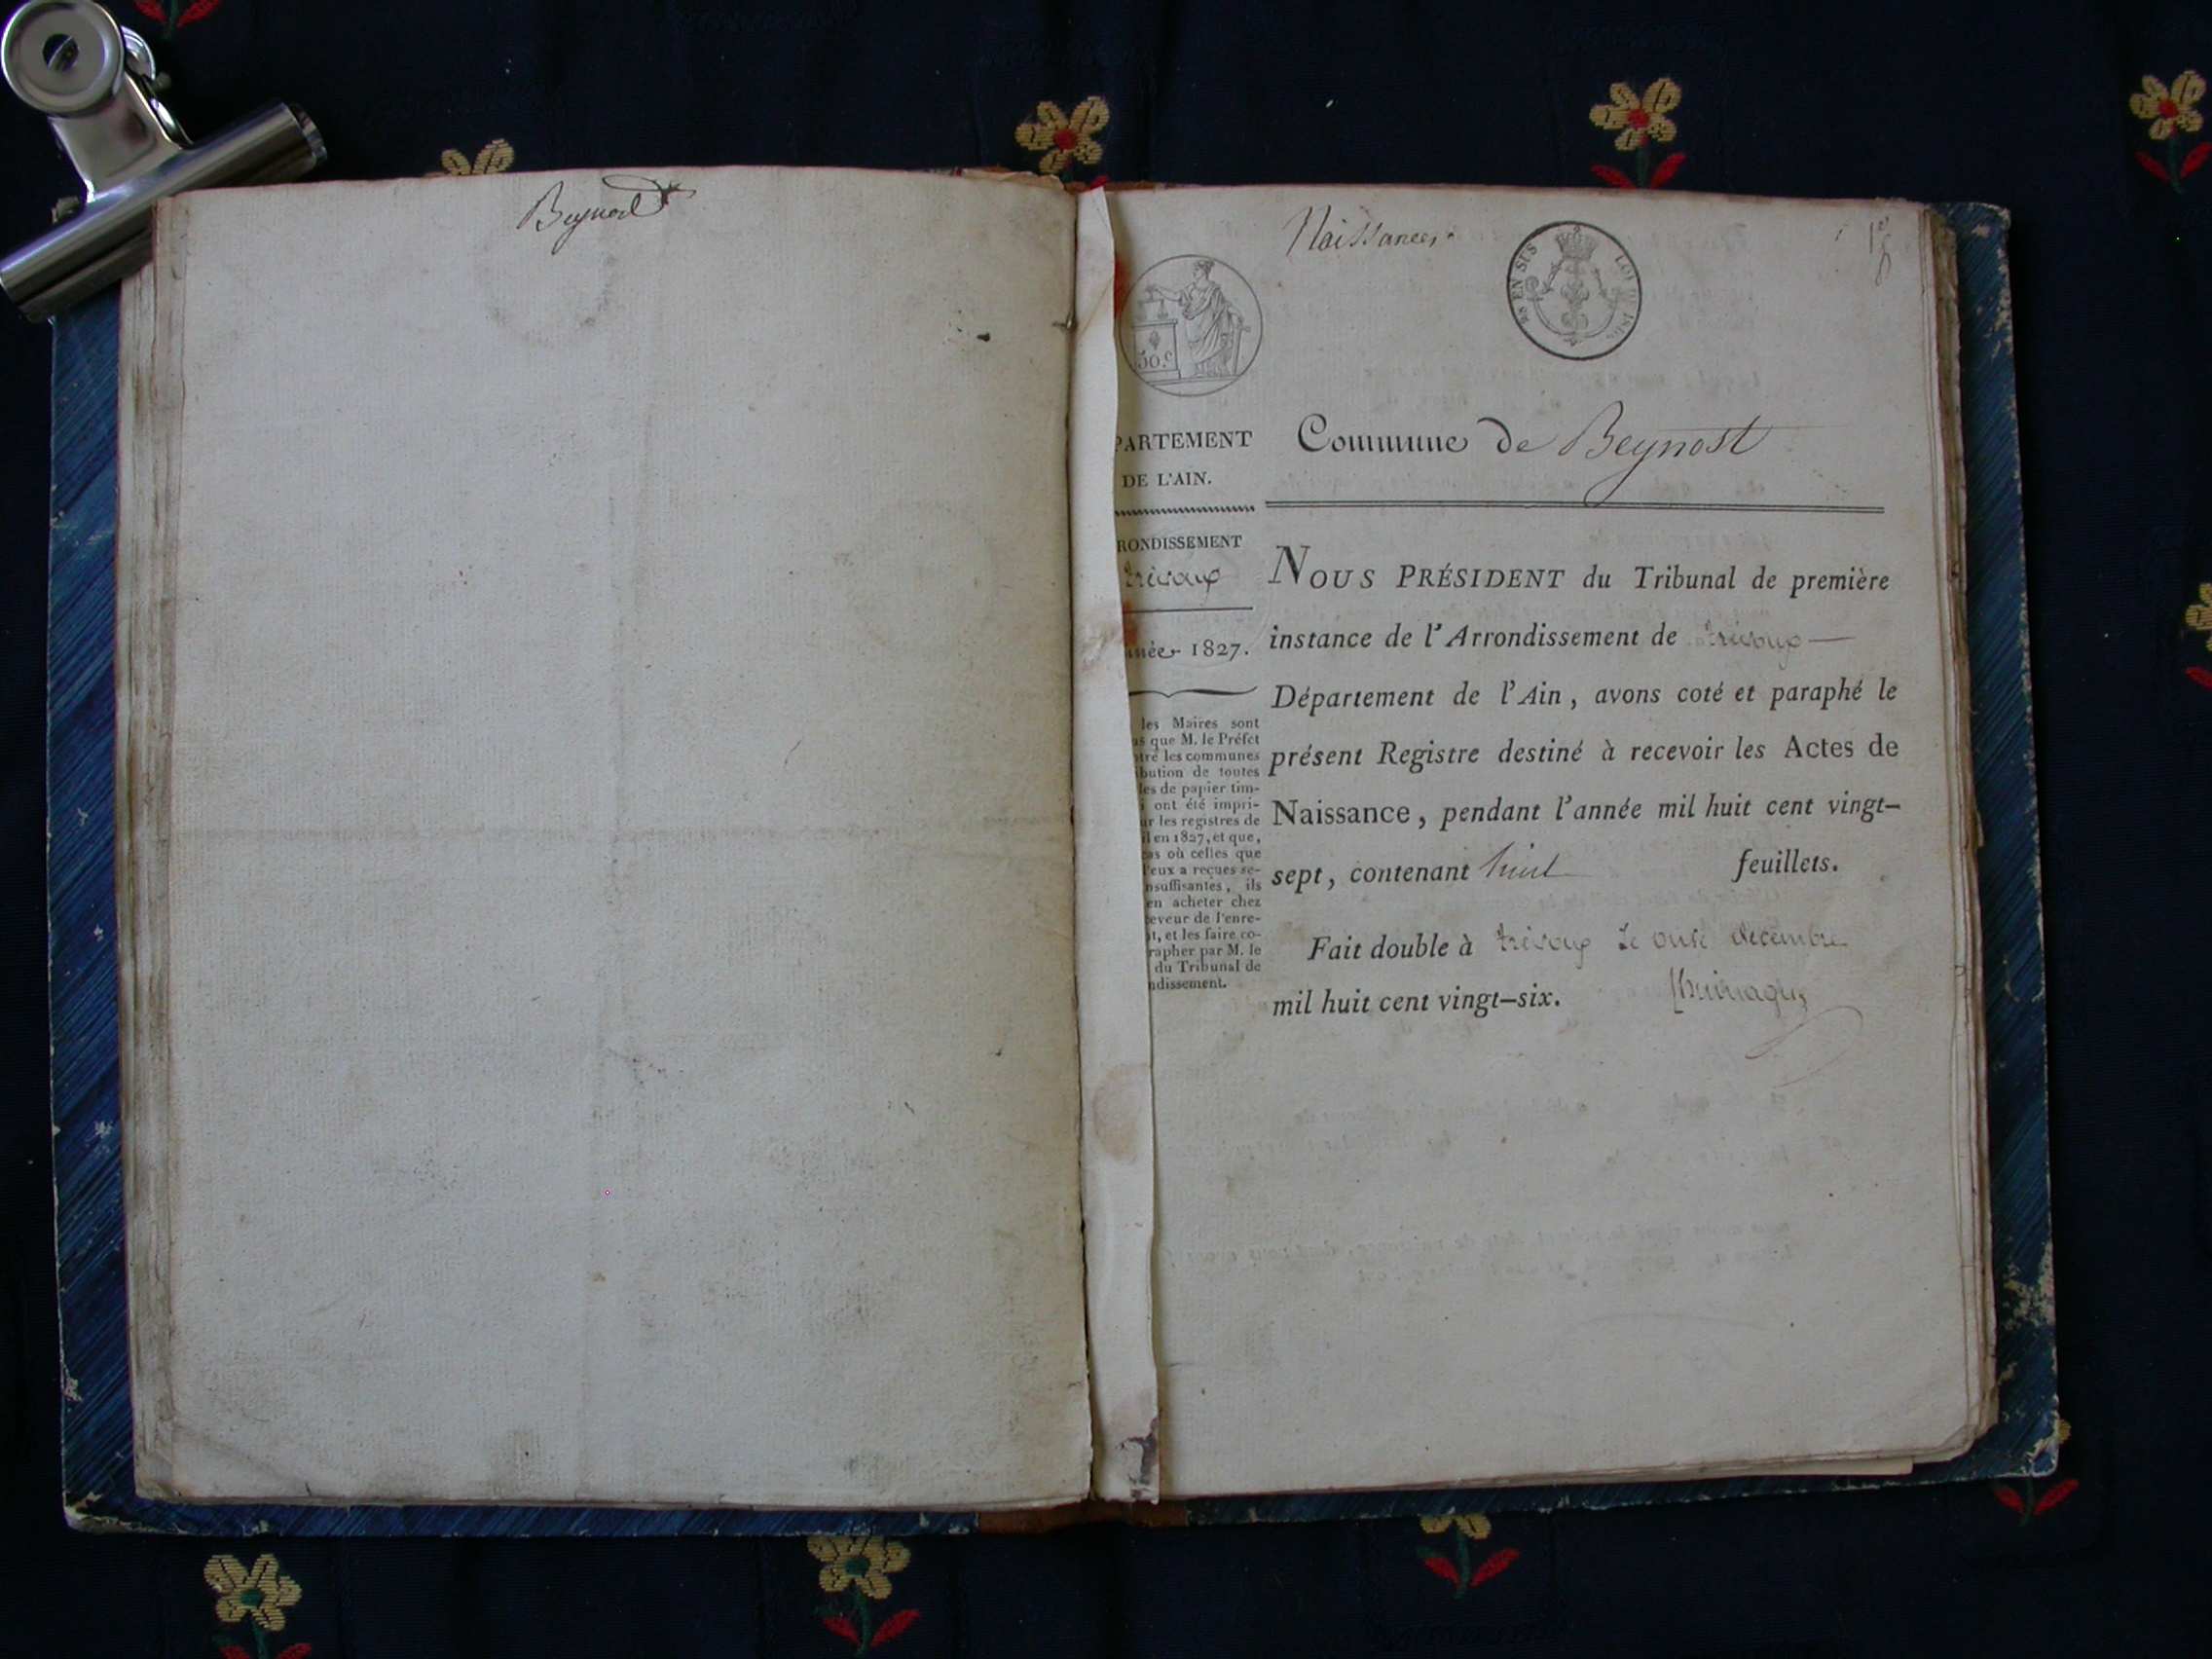 Beynost
Naissances
EN SUS
LOI DE 1816
50.c
PARTEMENT
DE L'AIN.
RONDISSEMENT
trévoux
née 1827.
les Maires sont
que M. le Préfet
tre les communes
bution de toutes
les de papier tim-
ont été impri-
ur les registres de
en 1827, et que,
cas où celles que
d'eux a reçues se-
nsuffisantes, ils
en acheter chez
ceveur de l'enre-
t, et les faire co-
rapher par M. le
du Tribunal de
ndissement.
Commune de Beynost
NOUS PRÉSIDENT du Tribunal de première
instance de l'Arrondissement de trévoux
Département de l'Ain, avons coté et paraphé le
présent Registre destiné à recevoir les Actes de
Naissance, pendant l'année mil huit cent vingt-
sept, contenant huit feuillets.
Fait double à trévoux le onze décembre
mil huit cent vingt-six.